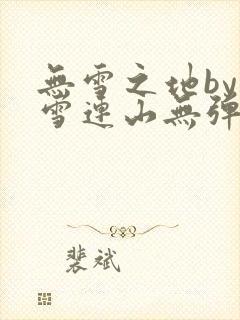 無雪之地by
雪連山無彈
裴斌